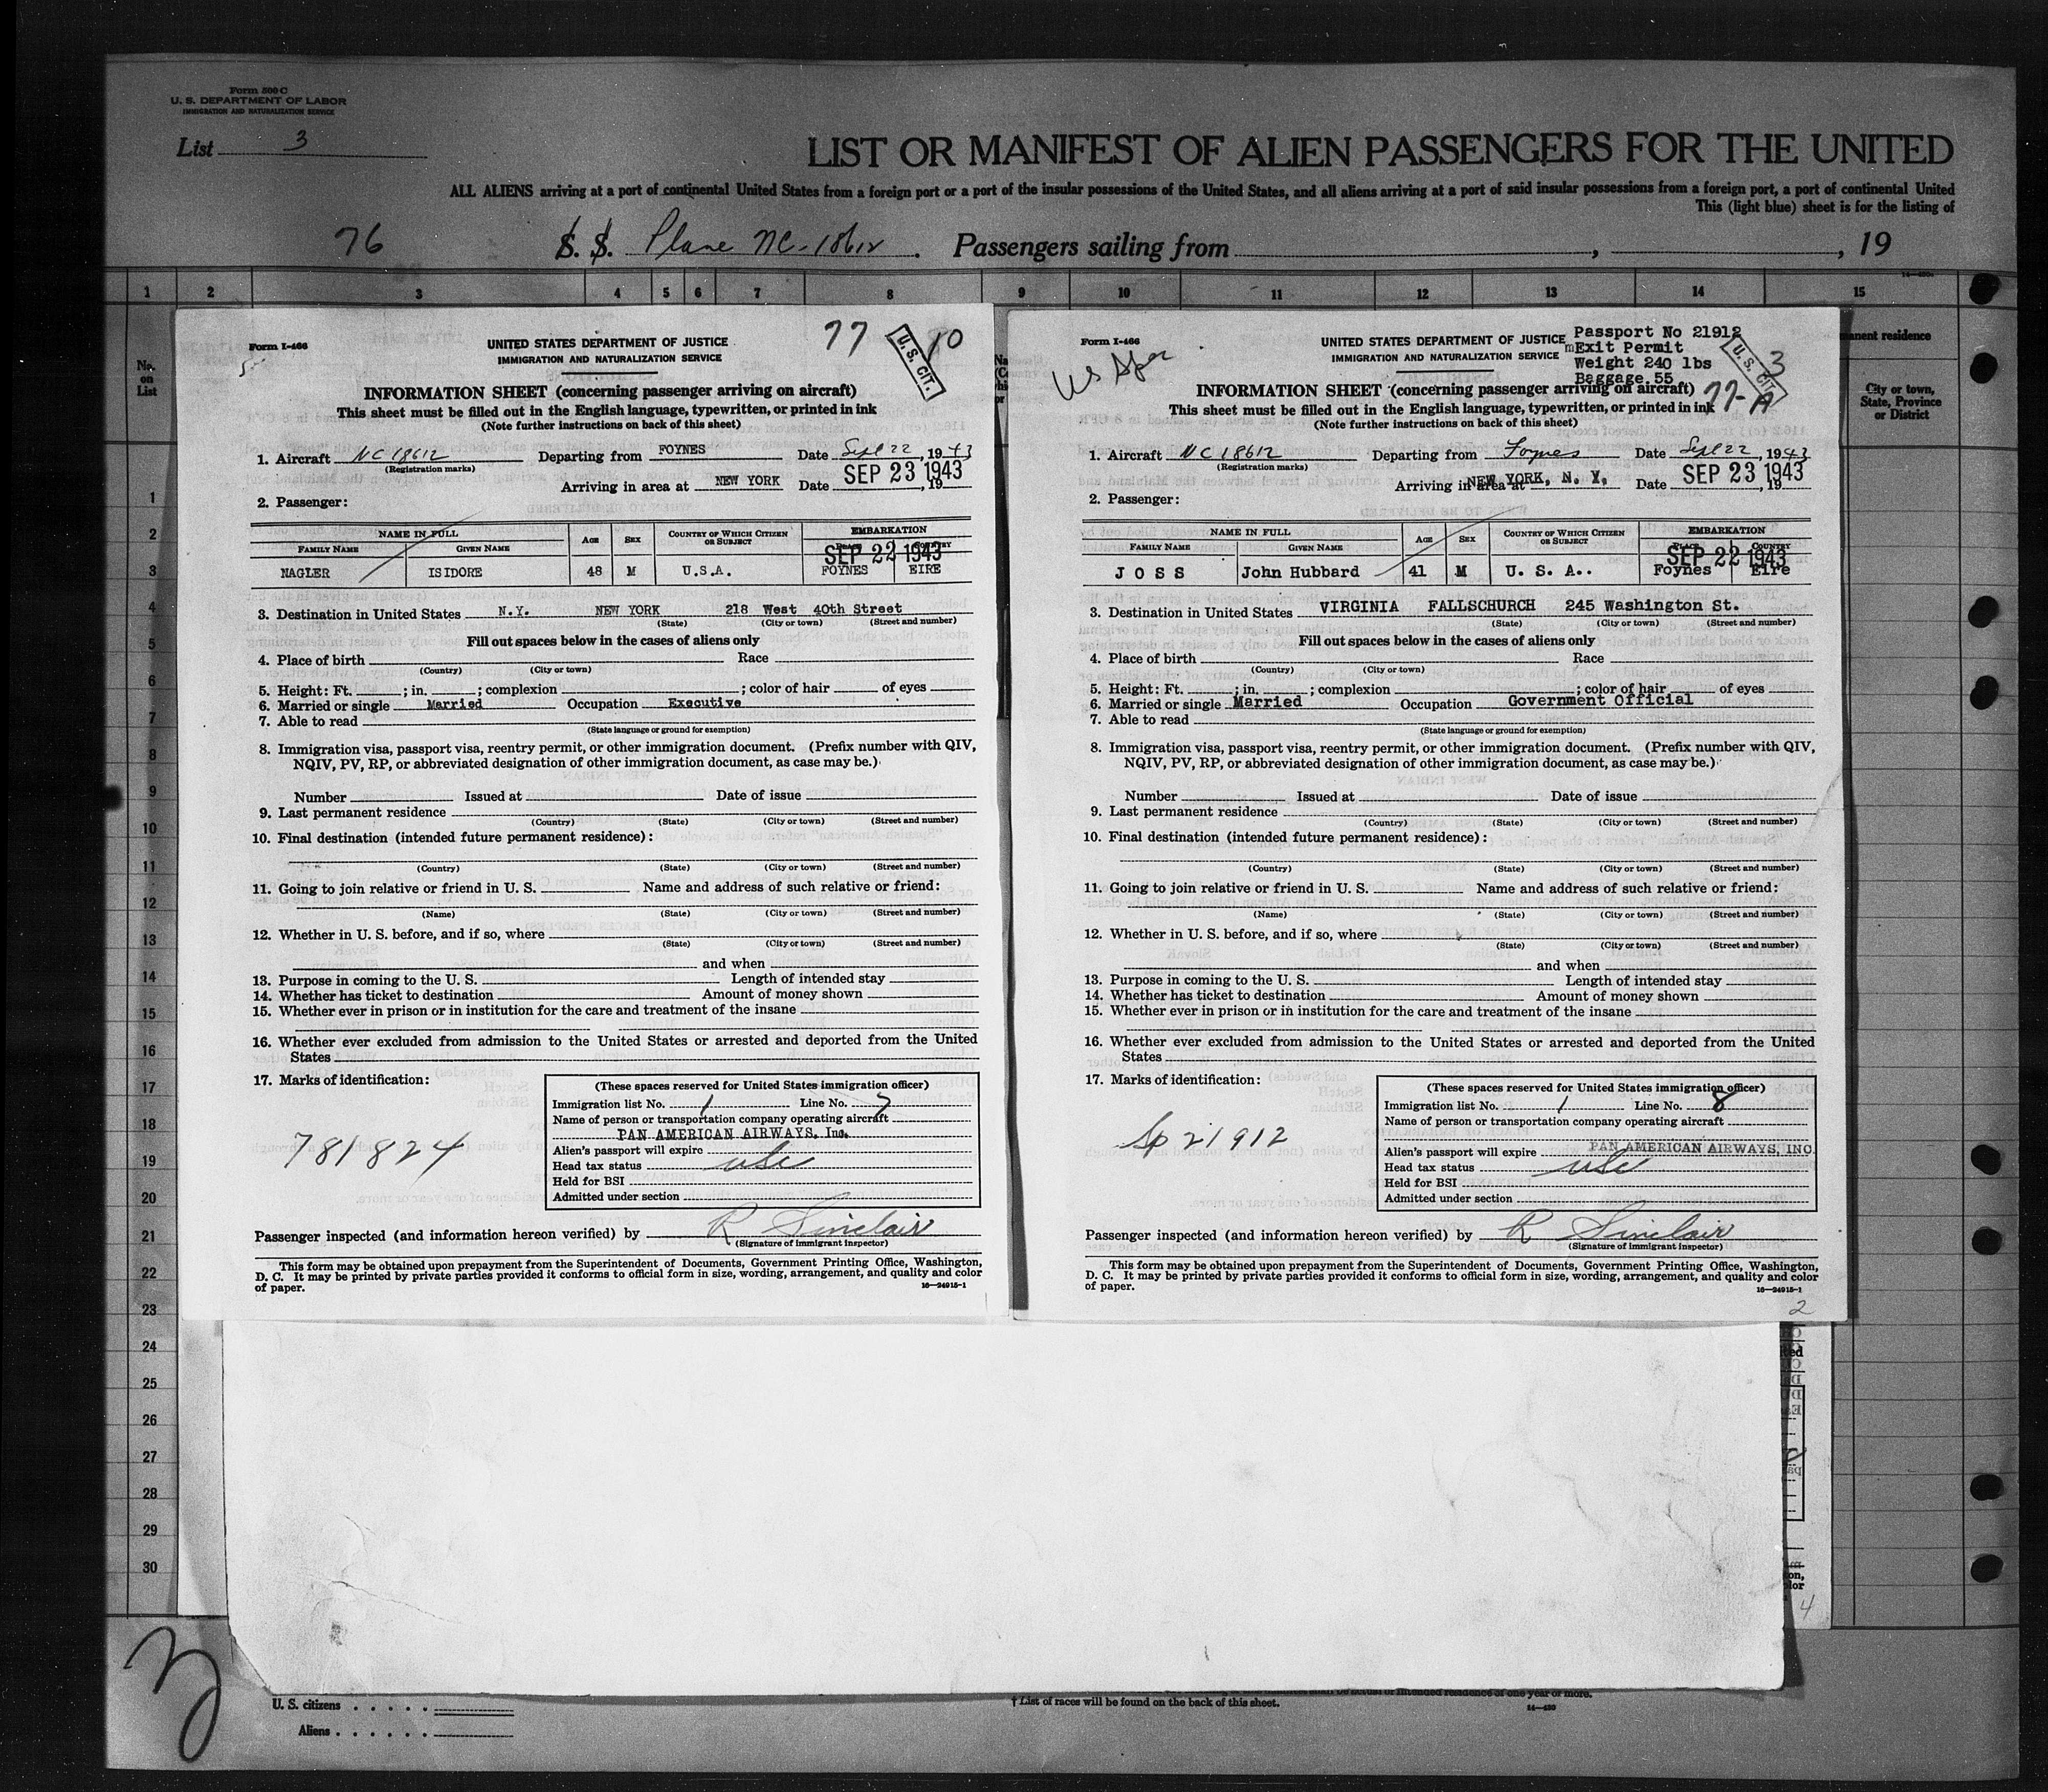 Form 500 C
U. S. DEPARTMENT OF LABOR
IMMIGRATION AND NATURALIZATION SERVICE
List 3
LIST OR MANIFEST OF ALIEN PASSENGERS FOR THE UNITED
ALL ALIENS arriving at a port of continental United States from a foreign port or a port of the insular possessions of the United States, and all aliens arriving at a port of said insular possessions from a foreign port, a port of continental United
This (light blue) sheet is for the listing of
76 S. S. Plane NC-18612. Passengers sailing from , , 19
1 2 3 4 5 6 7 8 9 10 11 12 13 14 15
No. on List
manent residence
City or town, State, Province or District
1
2
3
4
5
6
7
8
9
10
11
12
13
14
15
16
17
18
19
20
21
22
23
24
25
26
27
28
29
30
Form I-466
UNITED STATES DEPARTMENT OF JUSTICE
IMMIGRATION AND NATURALIZATION SERVICE
77 U. S. CIT. 10
INFORMATION SHEET (concerning passenger arriving on aircraft)
This sheet must be filled out in the English language, typewritten, or printed in ink
(Note further instructions on back of this sheet)
1. Aircraft NC 18612 Departing from FOYNES Date Sept 22, 1943
(Registration marks)
Arriving in area at NEW YORK Date SEP 23 1943, 19
2. Passenger:
NAME IN FULL AGE SEX COUNTRY OF WHICH CITIZEN OR SUBJECT EMBARKATION
FAMILY NAME GIVEN NAME PLACE COUNTRY
SEP 22 1943
NAGLER ISIDORE 48 M U.S.A. FOYNES EIRE
3. Destination in United States N.Y. NEW YORK 218 West 40th Street
(State) (City or town) (Street and number)
Fill out spaces below in the cases of aliens only
4. Place of birth Race
(Country) (City or town)
5. Height: Ft. ; in. ; complexion ; color of hair of eyes
6. Married or single Married Occupation Executive
7. Able to read
(State language or ground for exemption)
8. Immigration visa, passport visa, reentry permit, or other immigration document. (Prefix number with QIV,
NQIV, PV, RP, or abbreviated designation of other immigration document, as case may be.)
Number Issued at Date of issue
9. Last permanent residence
(Country) (State) (City or town) (Street and number)
10. Final destination (intended future permanent residence):
(Country) (State) (City or town) (Street and number)
11. Going to join relative or friend in U. S. Name and address of such relative or friend:
(Name) (State) (City or town) (Street and number)
12. Whether in U. S. before, and if so, where
(State) (City or town) (Street and number)
and when
13. Purpose in coming to the U. S. Length of intended stay
14. Whether has ticket to destination Amount of money shown
15. Whether ever in prison or in institution for the care and treatment of the insane
16. Whether ever excluded from admission to the United States or arrested and deported from the United
States
17. Marks of identification:
781824
(These spaces reserved for United States immigration officer)
Immigration list No. 1 Line No. 7
Name of person or transportation company operating aircraft
PAN AMERICAN AIRWAYS, Inc.
Alien's passport will expire
Head tax status usc
Held for BSI
Admitted under section
Passenger inspected (and information hereon verified) by R Sinclair
(Signature of immigrant inspector)
This form may be obtained upon prepayment from the Superintendent of Documents, Government Printing Office, Washington,
D. C. It may be printed by private parties provided it conforms to official form in size, wording, arrangement, and quality and color
of paper. 16—24915-1
Form I-466
UNITED STATES DEPARTMENT OF JUSTICE
IMMIGRATION AND NATURALIZATION SERVICE
Passport No 21912
Exit Permit
Weight 240 lbs
Baggage 55
U. S. CIT. 3
77-A
INFORMATION SHEET (concerning passenger arriving on aircraft)
This sheet must be filled out in the English language, typewritten, or printed in ink
(Note further instructions on back of this sheet)
1. Aircraft NC 18612 Departing from Foynes Date Sept 22, 1943
(Registration marks)
Arriving in area at NEW YORK, N. Y. Date SEP 23 1943, 19
2. Passenger:
NAME IN FULL AGE SEX COUNTRY OF WHICH CITIZEN OR SUBJECT EMBARKATION
FAMILY NAME GIVEN NAME PLACE COUNTRY
SEP 22 1943
JOSS John Hubbard 41 M U. S. A.. Foynes Eire
3. Destination in United States VIRGINIA FALLSCHURCH 245 Washington St.
(State) (City or town) (Street and number)
Fill out spaces below in the cases of aliens only
4. Place of birth Race
(Country) (City or town)
5. Height: Ft. ; in. ; complexion ; color of hair of eyes
6. Married or single Married Occupation Government Official
7. Able to read
(State language or ground for exemption)
8. Immigration visa, passport visa, reentry permit, or other immigration document. (Prefix number with QIV,
NQIV, PV, RP, or abbreviated designation of other immigration document, as case may be.)
Number Issued at Date of issue
9. Last permanent residence
(Country) (State) (City or town) (Street and number)
10. Final destination (intended future permanent residence):
(Country) (State) (City or town) (Street and number)
11. Going to join relative or friend in U. S. Name and address of such relative or friend:
(Name) (State) (City or town) (Street and number)
12. Whether in U. S. before, and if so, where
(State) (City or town) (Street and number)
and when
13. Purpose in coming to the U. S. Length of intended stay
14. Whether has ticket to destination Amount of money shown
15. Whether ever in prison or in institution for the care and treatment of the insane
16. Whether ever excluded from admission to the United States or arrested and deported from the United
States
17. Marks of identification:
Sp 21912
(These spaces reserved for United States immigration officer)
Immigration list No. 1 Line No. 8
Name of person or transportation company operating aircraft
PAN AMERICAN AIRWAYS, INC.
Alien's passport will expire
Head tax status usc
Held for BSI
Admitted under section
Passenger inspected (and information hereon verified) by R Sinclair
(Signature of immigrant inspector)
This form may be obtained upon prepayment from the Superintendent of Documents, Government Printing Office, Washington,
D. C. It may be printed by private parties provided it conforms to official form in size, wording, arrangement, and quality and color
of paper. 16—24915-1
2
4
U. S. citizens
Aliens
† List of races will be found on the back of this sheet.
14—420